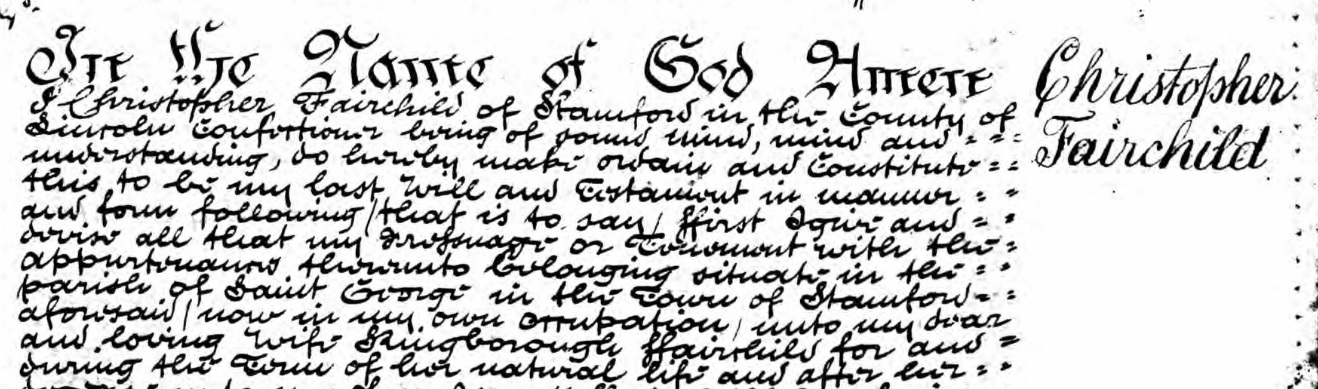 In the Name of God Amen
Christopher
Fairchild
I Christopher Fairchild of Stamford in the County of
Lincoln Confectioner being of sound mind, mind and = =
understanding, do hereby make ordain and Constitute = =
this to be my last Will and Testament in manner = =
and form following (that is to say) ffirst I give and = =
devise all that my Messuage or Tenement with the =
appurtenances thereunto belonging situate in the = =
parish of Saint George in the Town of Stamford = =
aforesaid (now in my own occupation) unto my dear
and loving Wife Kingborough ffairchild for and =
during the Term of her natural life and after her = =